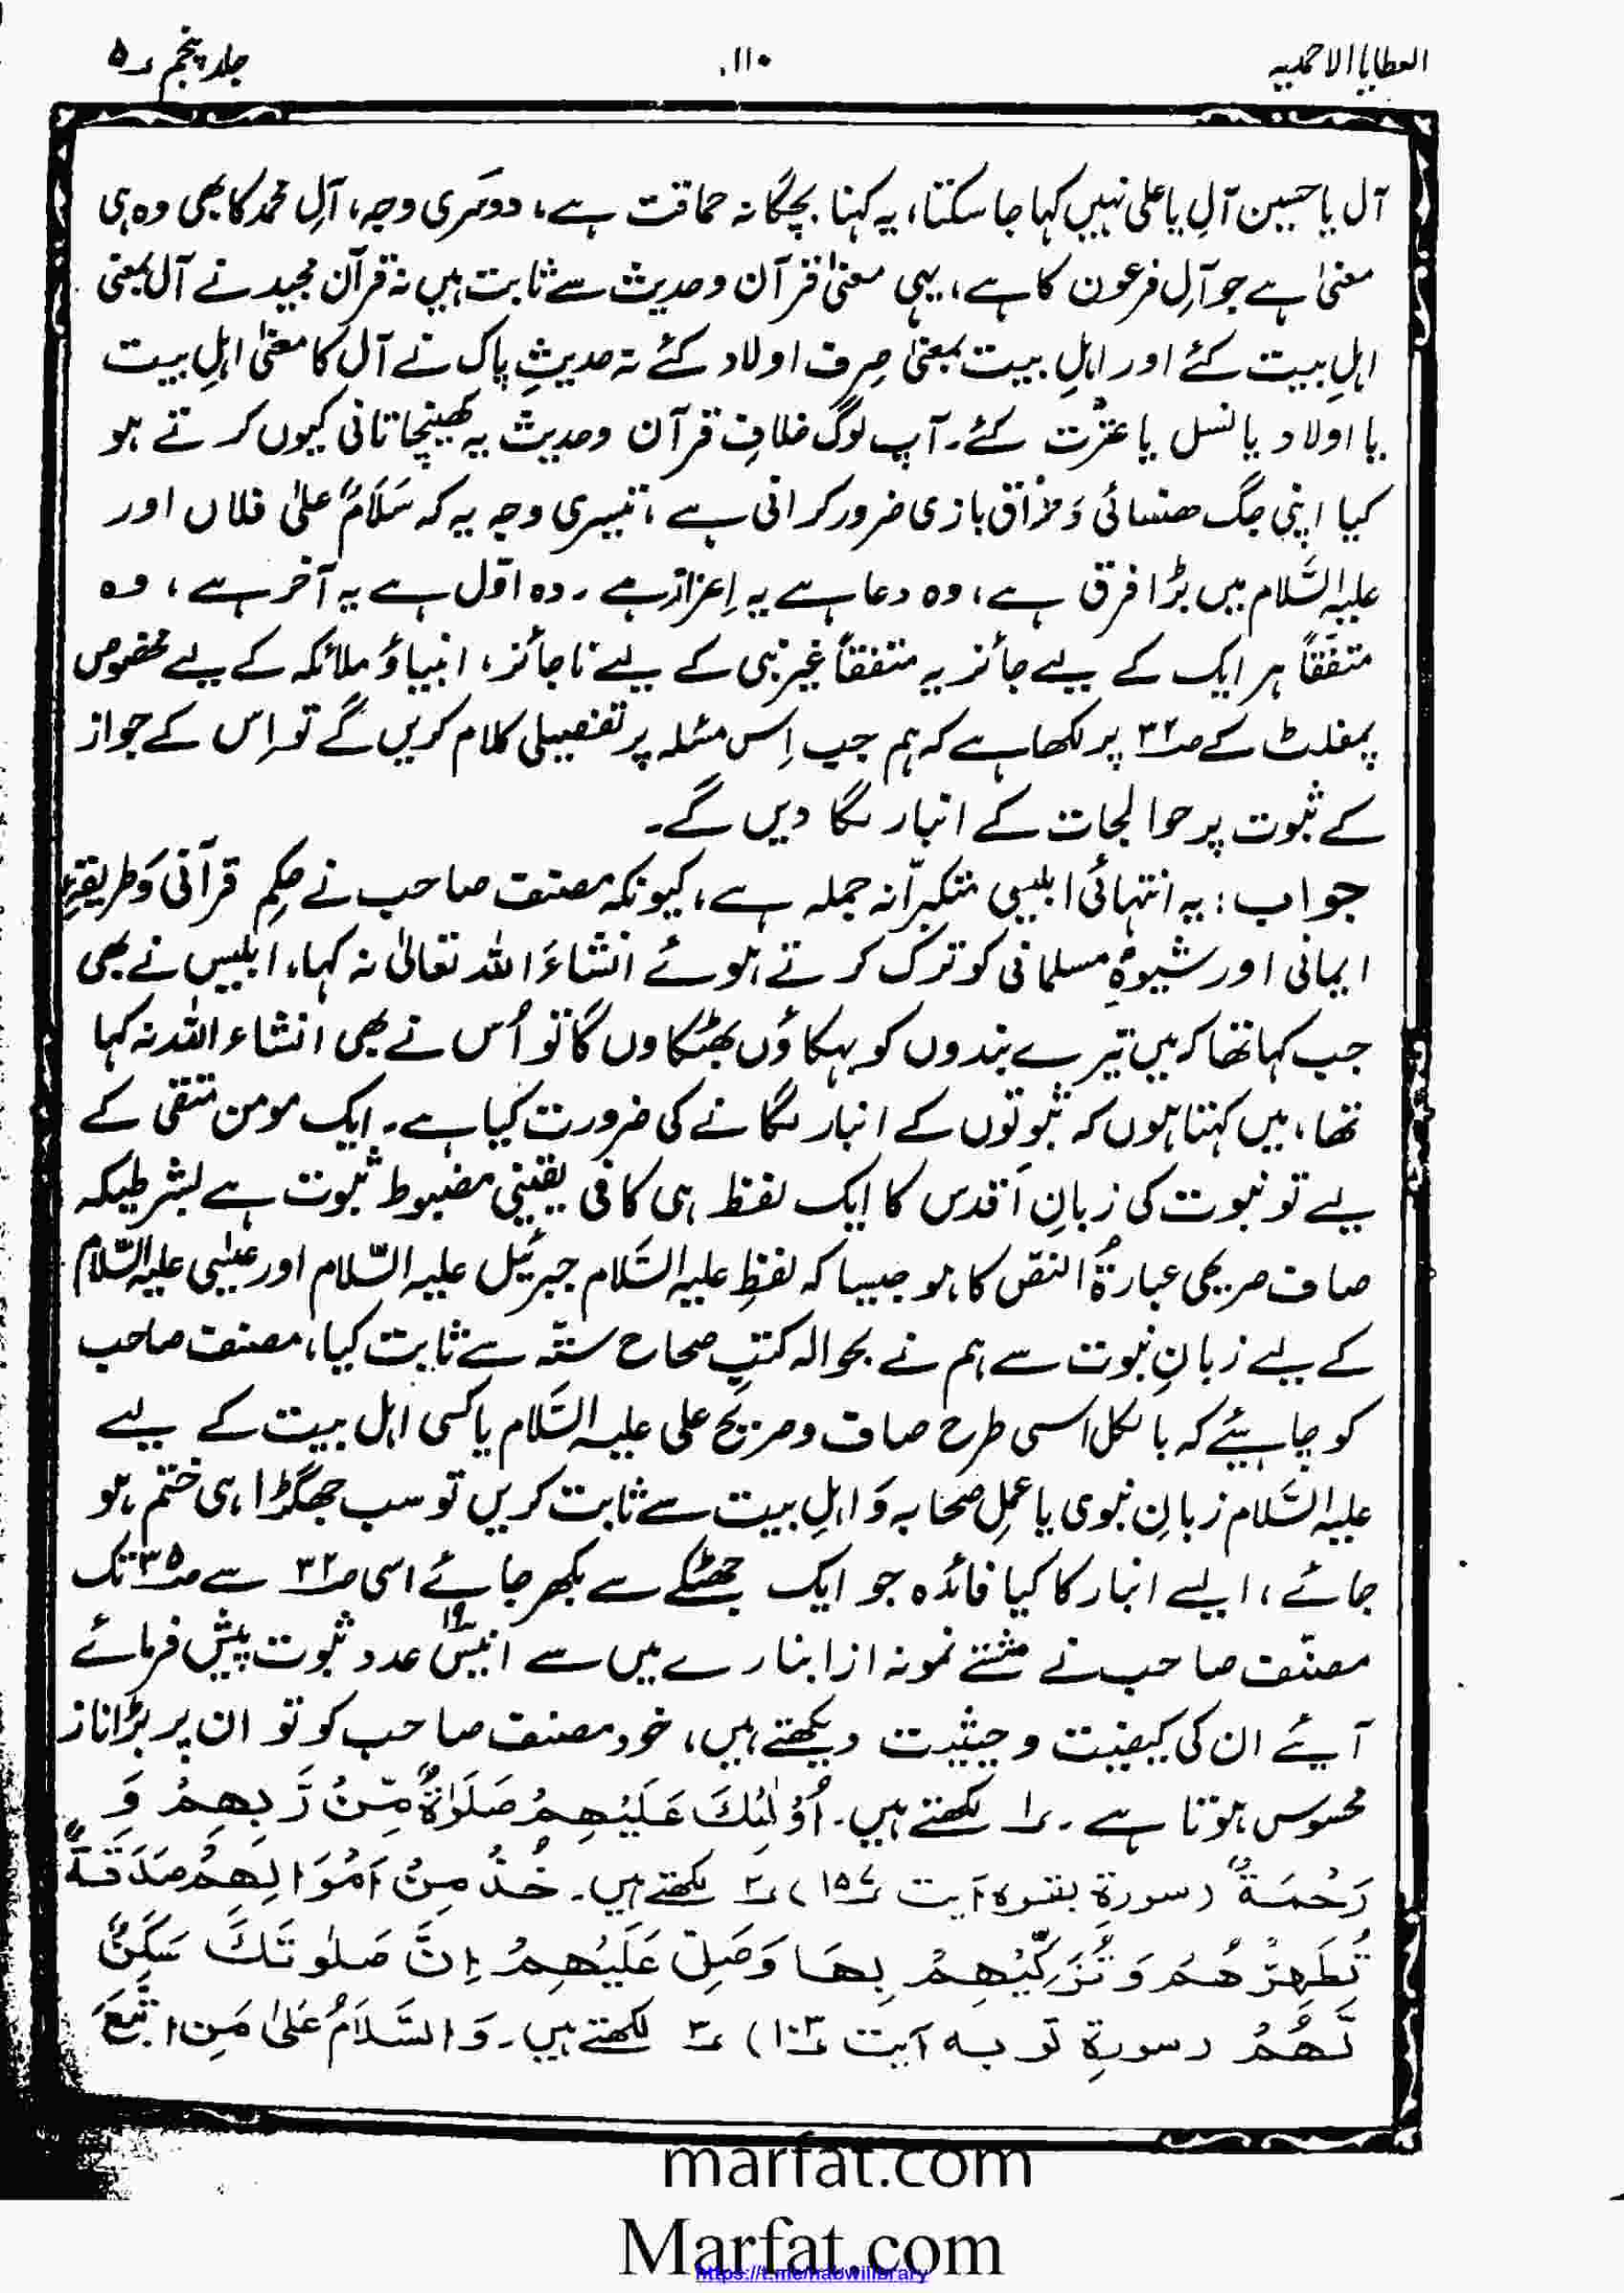 العطایا الاحمدیہ
۱۱۰
جلد پنجم ۵
آل یا حسین آلِ یا علی نہیں کہا جا سکتا، یہ کہنا بچگانہ حماقت ہے، دوسَری وجہ، آلِ محمد کا بھی وہ ہی
معنیٰ ہے جو آلِ فرعون کا ہے، یہی معنیٰ قرآن و حدیث سے ثابت ہیں نہ قرآن مجید نے آل بمعنی
اہلِ بیت کئے اور اہلِ بیت بمعنیٰ صِرف اولاد کئے نہ حدیثِ پاک نے آل کا معنیٰ اہلِ بیت
یا اولاد یا نسل یا عترت کئے۔ آپ لوگ خلافِ قرآن و حدیث یہ کھینچا تانی کیوں کرتے ہو
کیا اپنی جگ ھنسائی وَ مذاق بازی ضرور کرانی ہے، تیسری وجہ یہ کہ سَلَامٌ علیٰ فلاں اور
علیہ السَّلام میں بڑا فرق ہے، وہ دعا ہے یہ اِعزاز ہے۔ وہ اوّل ہے یہ آخر ہے، وہ
متفَقاً ہر ایک کے لیے جائز یہ متفقاً غیر نبی کے لیے ناجائز، انبیاؤ ملائکہ کے لیے مخصوص
پمفلٹ کے صـ۳۲ پر لکھا ہے کہ ہم جب اِس مسٔلہ پر تفصیلی کلام کریں گے تو اِس کے جواز
کے ثبوت پر حوالجات کے انبار لگا دیں گے۔
جواب: یہ انتہائی ابلیسی متکبرّانہ جملہ ہے، کیونکہ مصنف صاحب نے حکِم قرآنی وَ طریقہِٗ
ایمانی اور شیوہِٗ مسلمانی کو ترک کرتے ہوئے انشاءَ اللہ تعالیٰ نہ کہا، ابلیس نے بھی
جب کہا تھا کہ میں تیرے بندوں کو بہکاؤں بھٹکاوں گا تو اُس نے بھی انشاء اللہ نہ کہا
تھا، میں کہتا ہوں کہ ثبوتوں کے انبار لگانے کی ضرورت کیا ہے۔ ایک مومن متقی کے
لیے تو نبوت کی زبانِ اَقدس کا ایک لفظ ہی کافی یقینی مضبوط ثبوت ہے بشرطیکہ
صاف صریحی عبارۃُ النص کا ہو جیسا کہ لفظِ علیہ السَّلام جبرئیل علیہ السّلام اور عیسٰی علیہ السَّلام
کے لیے زبانِ نبوت سے ہم نے بحوالہ کتبِ صحاح ستّہ سے ثابت کیا، مصنف صاحب
کو چاہیئے کہ بالکل اسی طرح صاف و صریح علی علیہ السَّلام یا کسی اہل بیت کے لیے
علیہ السَّلام زبانِ نبوی یا عملِ صحابہ وَ اہلِ بیت سے ثابت کریں تو سب جھگڑا ہی ختم ہو
جائے، ایسے انبار کا کیا فائدہ جو ایک جھٹکے سے بکھر جائے اسی صـ۳۲ سے صـ۳۵ تک
مصنّف صاحب نے مشتے نمونہ از انبارے میں سے انیسّ ۱۹ عدد ثبوت پیش فرمائے
آیئے ان کی کیفیت و حیثیت دیکھتے ہیں، خود مصنف صاحب کو تو ان پر بڑا ناز
محسوس ہوتا ہے۔ ۱ لکھتے ہیں۔ اُوْلٰئِكَ عَلَيْهِمْ صَلَوٰاةٌ مِّنْ رَّبِهِمْ وَ
رَحْمَةٌ (سورۃِ بقرہ آیت ۱۵۷) ۲ لکھتے ہیں۔ خُذْ مِنْ اَمْوَالِهِمْ صَدَقَةً
تُطَهِّرْهُمْ وَتُزَكِّيْهِمْ بِهَا وَصَلِّ عَلَيْهِمْ اِنَّ صَلٰوتَكَ سَكَنٌ
لَّهُمْ (سورۃِ توبہ آیت ۱۰۳) ۳ لکھتے ہیں۔ وَالسَّلَامُ عَلیٰ مَنِ اتَّبَعَ
marfat.com
Marfat.com
https://t.me/nabwilibrary